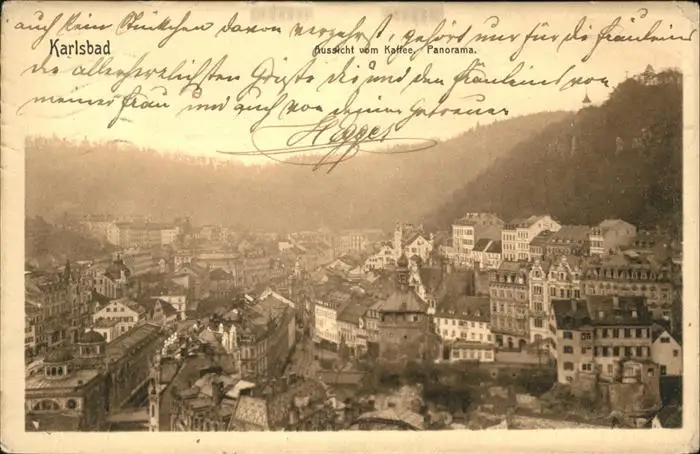 auch kein Stückchen davon verzehrst, gehört nur für die Fräuleins
Karlsbad
Aussicht vom Kaffee. Panorama.
die allerherzlichsten Grüße dir und den Fräulein von
meiner Frau und auch von deinem Getreuen